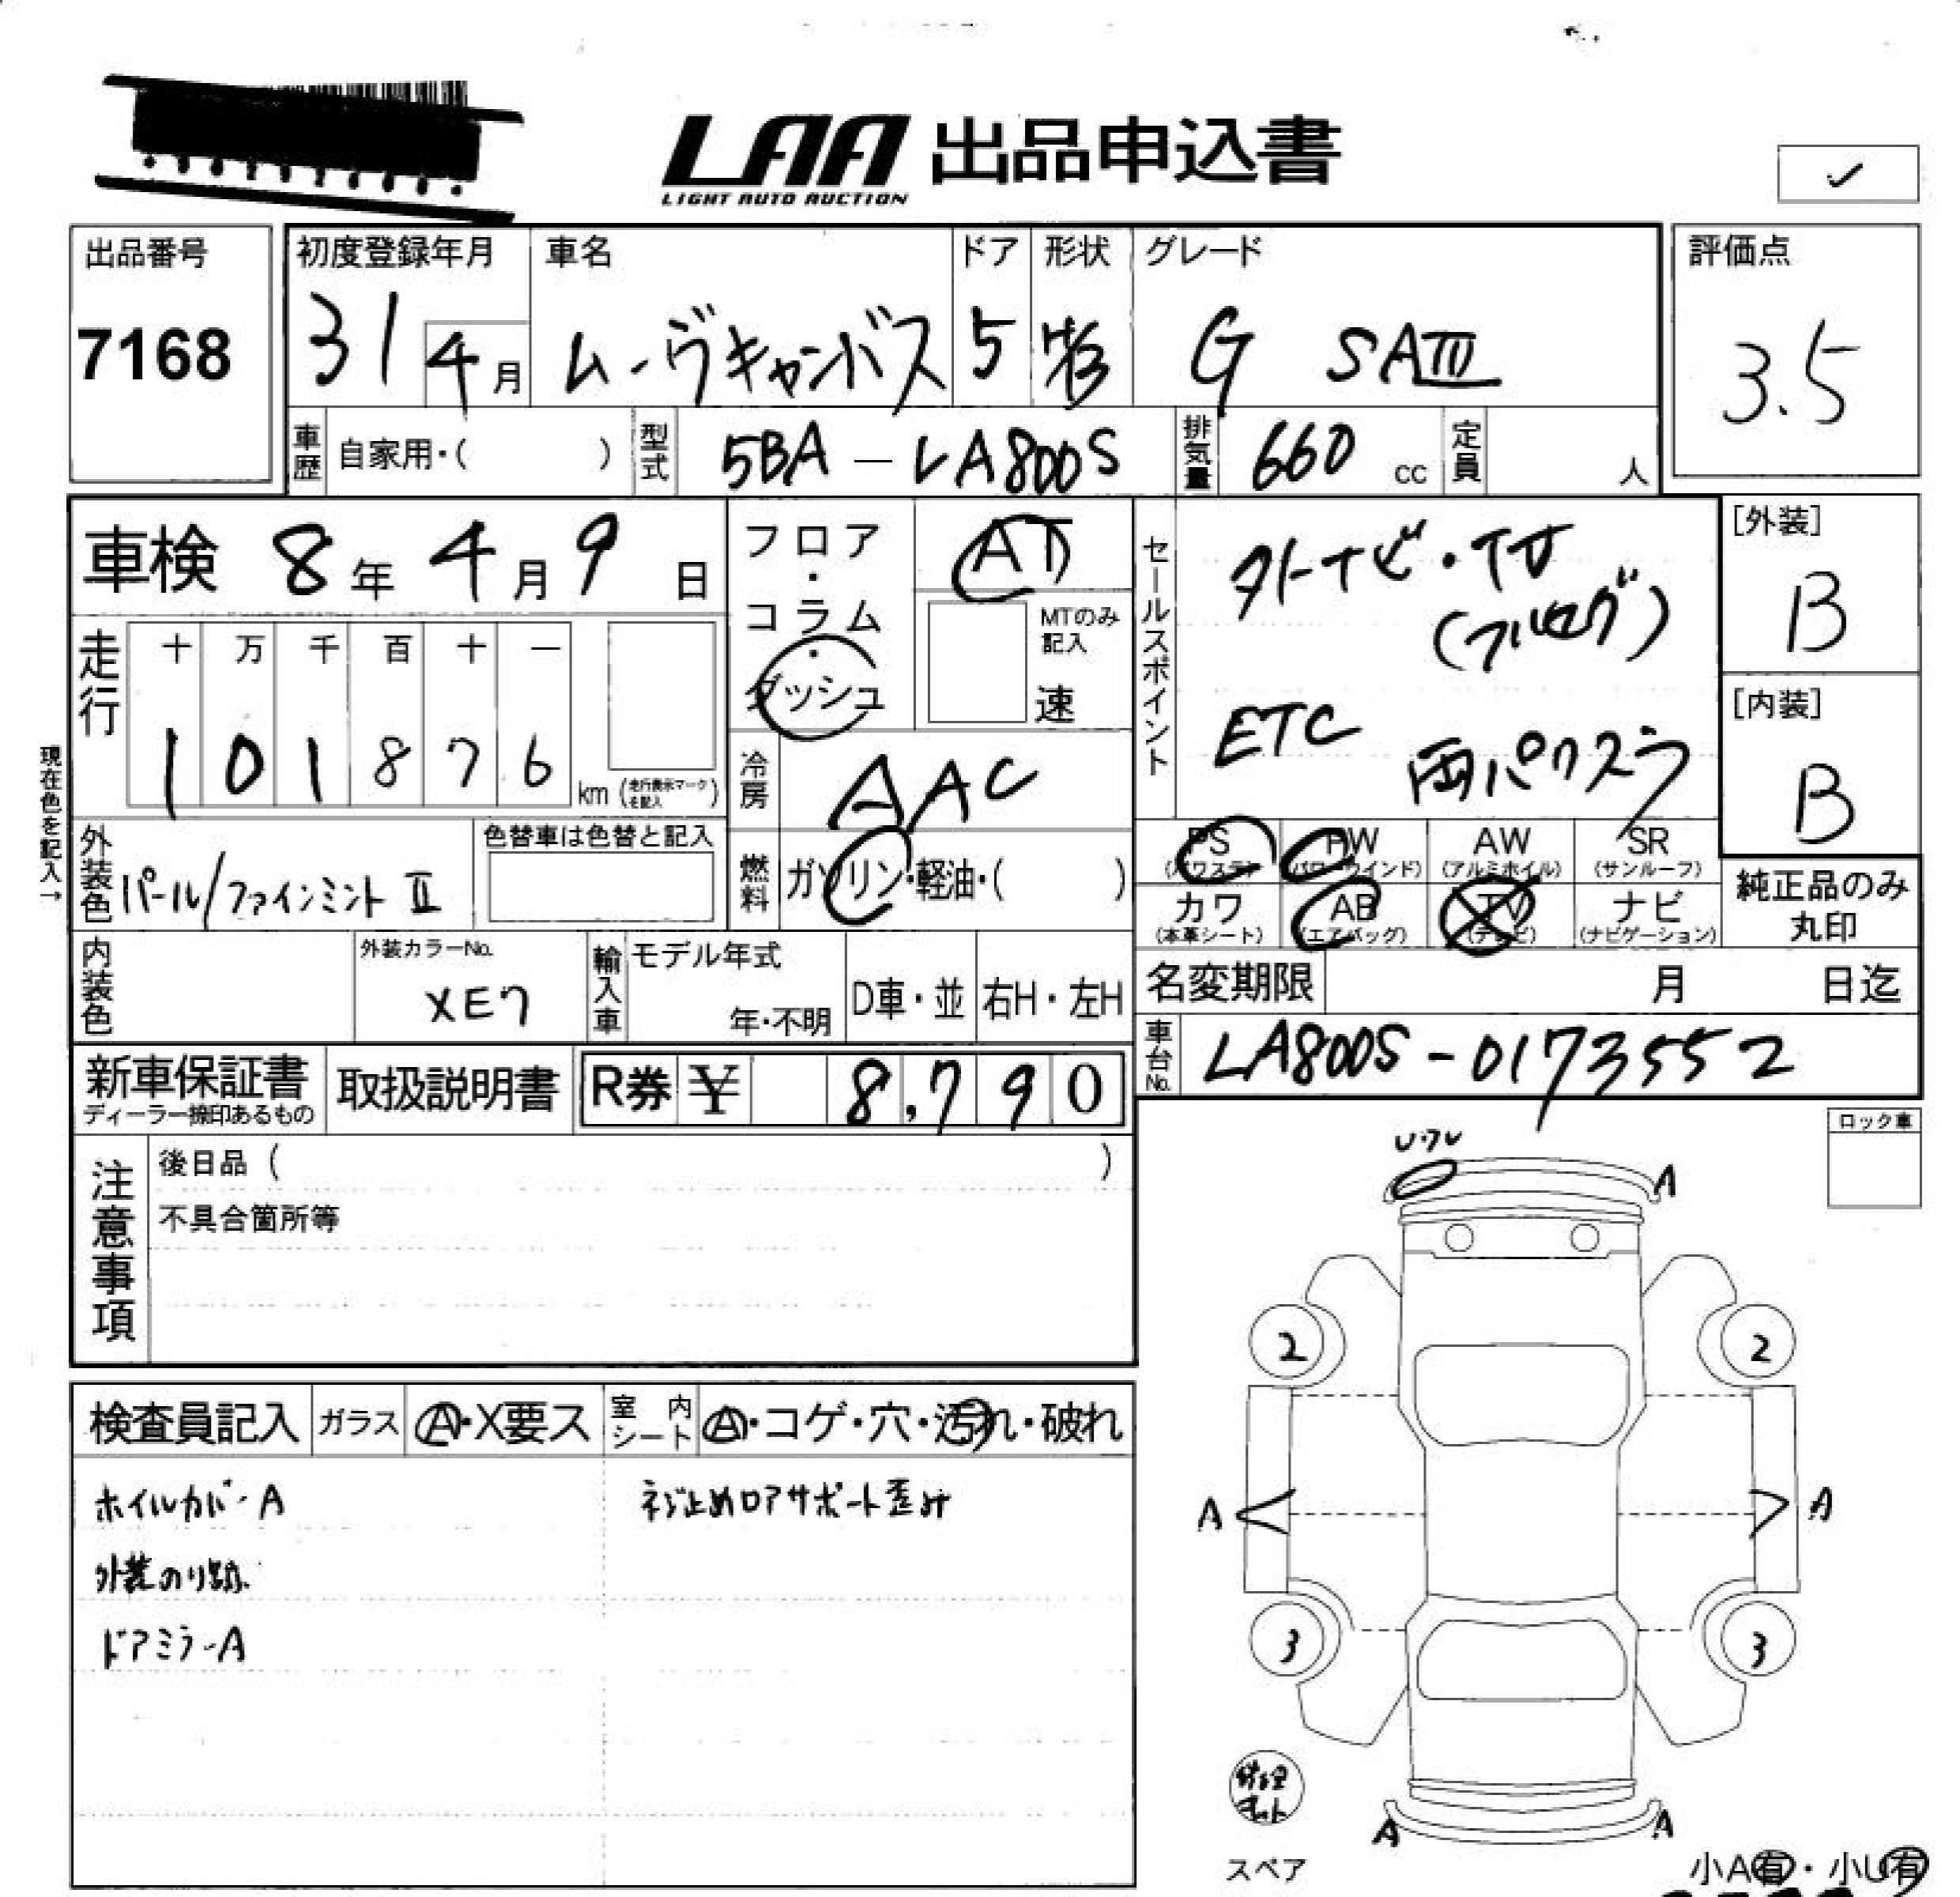 LAA 出品申込書
LIGHT AUTO AUCTION
✓
出品番号
7168
初度登録年月
31 4月
車名
ムーヴキャンバス
ドア
5
形状
箱
グレード
G SAⅢ
評価点
3.5
車歴 自家用・( )
型式 5BA-LA800S
排気量 660 cc
定員 人
車検 8年 4月 9日
フロア・コラム・ダッシュ
AT
MTのみ記入
速
セールスポイント
外ナビ・TV
(フルセグ)
ETC 両パワスラ
[外装]
B
[内装]
B
走行
十 万 千 百 十 一
1 0 1 8 7 6 km (走行表示マークを記入)
現在色を記入→
冷房 AAC
外装色 パール/ファインミントⅡ
色替車は色替と記入
燃料 ガソリン・軽油・( )
PS (パワステ)
PW (パワーウインド)
AW (アルミホイル)
SR (サンルーフ)
カワ (本革シート)
AB (エアバッグ)
TV (テレビ)
ナビ (ナビゲーション)
純正品のみ丸印
内装色
外装カラーNo.
XE7
輸入車
モデル年式
年・不明
D車・並
右H・左H
名変期限 月 日迄
車台No. LA800S-0173552
新車保証書
ディーラー捺印あるもの
取扱説明書
R券 ¥ 8,790
ロック車
注意事項
後日品 ( )
不具合箇所等
検査員記入
ガラス Ⓐ・X要ス
室内シート Ⓐ・コゲ・穴・汚れ・破れ
ホイルカバーA
外装のり跡
ドアミラーA
ネジ止めロアサポート歪み
U・ワレ
A
2 2
A A
3 3
修理キット
スペア
A A
小A有・小U有